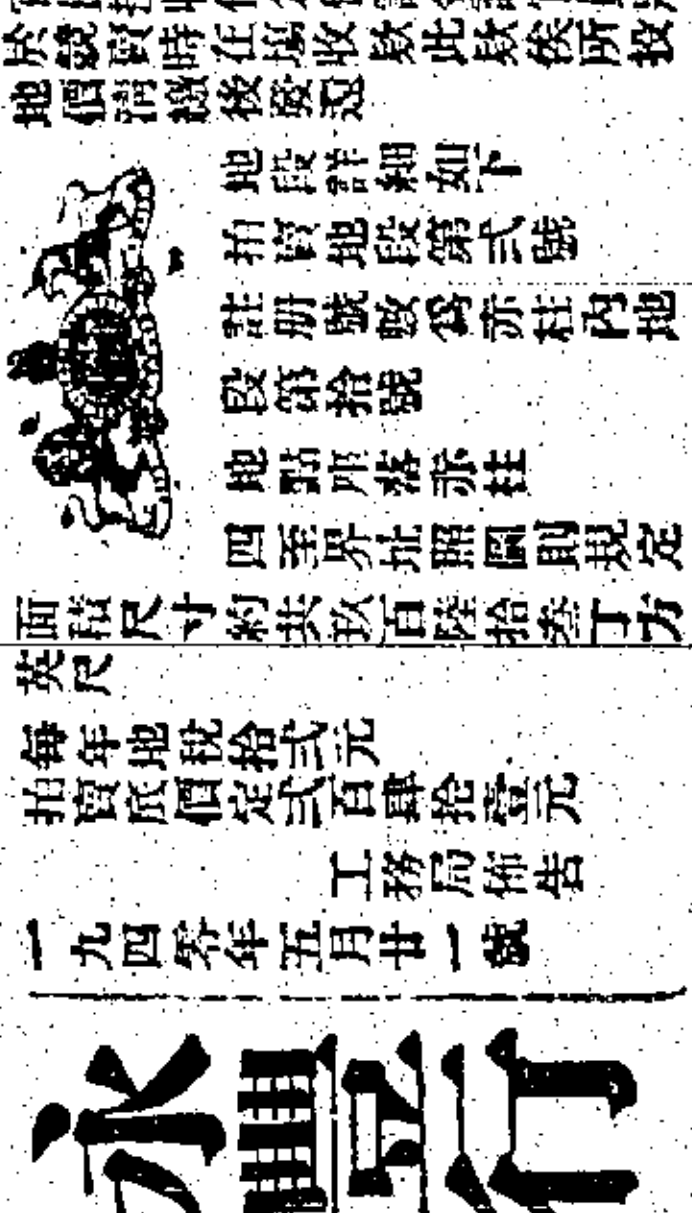 於競賣時在塲收欵此欵俟所投
地價淸繳後發還
地段詳細如下
拍賣地段第弍號
註册號數爲赤柱內地
段第拾號
地點坐落赤柱
四至界址照圖則規定
面積尺寸約共玖百陸拾叁丁方
英尺
每年地稅拾弍元
拍賣底價定弍百肆拾壹元
工務局佈告
一九四零年五月廿一號
永豐行